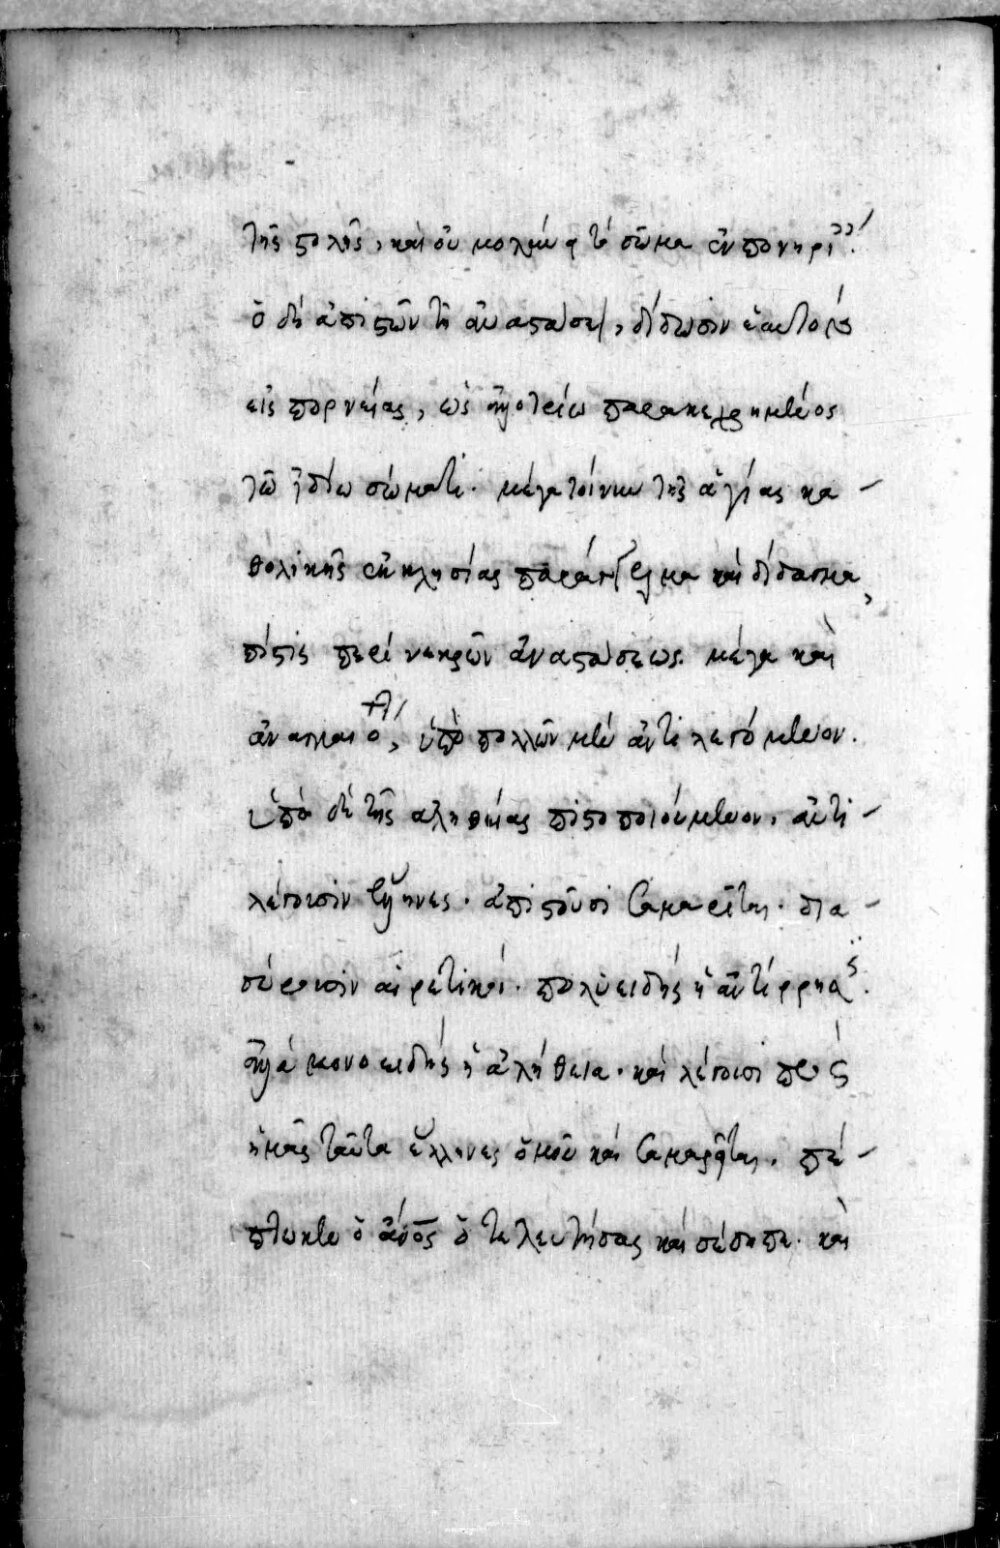 τῆς στολῆς, καὶ οὐ μολύνει τὸ σῶμα ἐν πορνείαις.
ὁ δὲ ἀπιστῶν τῇ ἀναστάσει, δίδωσιν ἑαυτὸν
εἰς πορνείας, ὡς ἀλλοτρίω παρακεχρημένος
τῶ ἰδίω σώματι. μέγα τοίνυν τῆς ἁγίας κα -
θολικῆς ἐκκλησίας παράγγελμα καὶ δίδαγμα,
πίστις περὶ νεκρῶν ἀναστάσεως. μέγα καὶ
ἀναγκαιότ, ὑπὸ πολλῶν μὲν ἀντιλεγόμενον.
ὑπὸ δὲ τῆς ἀληθείας πιστοποιούμενον. ἀντι -
λέγουσιν ἕλληνες. ἀπιστοῦσι σαμαρεῖται. δια -
σύρουσιν αἱρετικοί. πολυειδὴς ἡ ἀντίρρησις.
ἀλλὰ μονοειδὴς ἡ ἀλήθεια. καὶ λέγουσι πρὸς
ἡμᾶς ταῦτα ἕλληνες ὁμοῦ καὶ σαμαρεῖται. πέ -
πτωκεν ὁ ἄνος ὁ τελευτήσας καὶ σέσηπε. καὶ